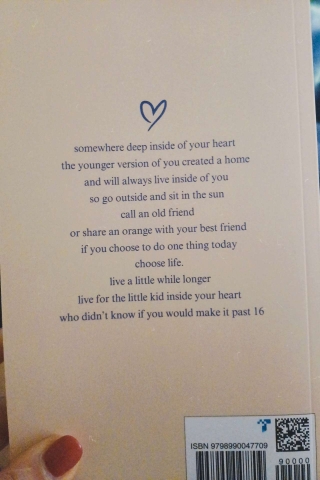 somewhere deep inside of your heart
the younger version of you created a home
and will always live inside of you
so go outside and sit in the sun
call an old friend
or share an orange with your best friend
if you choose to do one thing today
choose life.
live a little while longer
live for the little kid inside your heart
who didn't know if you would make it past 16
ISBN 9798990047709
90000